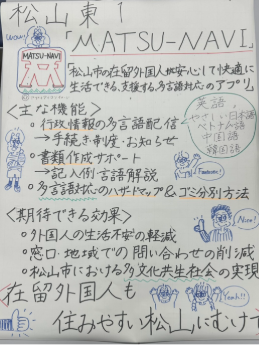 松山東1
Wow!
「MATSU-NAVI」
MATSU-NAVI
「松山市の在留外国人が安心して快適に
生活できる、支援する多言語対応のアプリ」
<主な機能>
・行政情報の多言語配信
→手続き・制度・お知らせ
・書類作成サポート
→記入例・言語解説
・多言語対応のハザードマップ&ゴミ分別方法
英語
やさしい日本語
ベトナム語
中国語
韓国語
<期待できる効果>
・外国人の生活不安の軽減
Nice!
・窓口・地域での問い合わせの削減
・松山市における多文化共生社会の実現
在留外国人も
Yeah!!
住みやすい松山にむけて